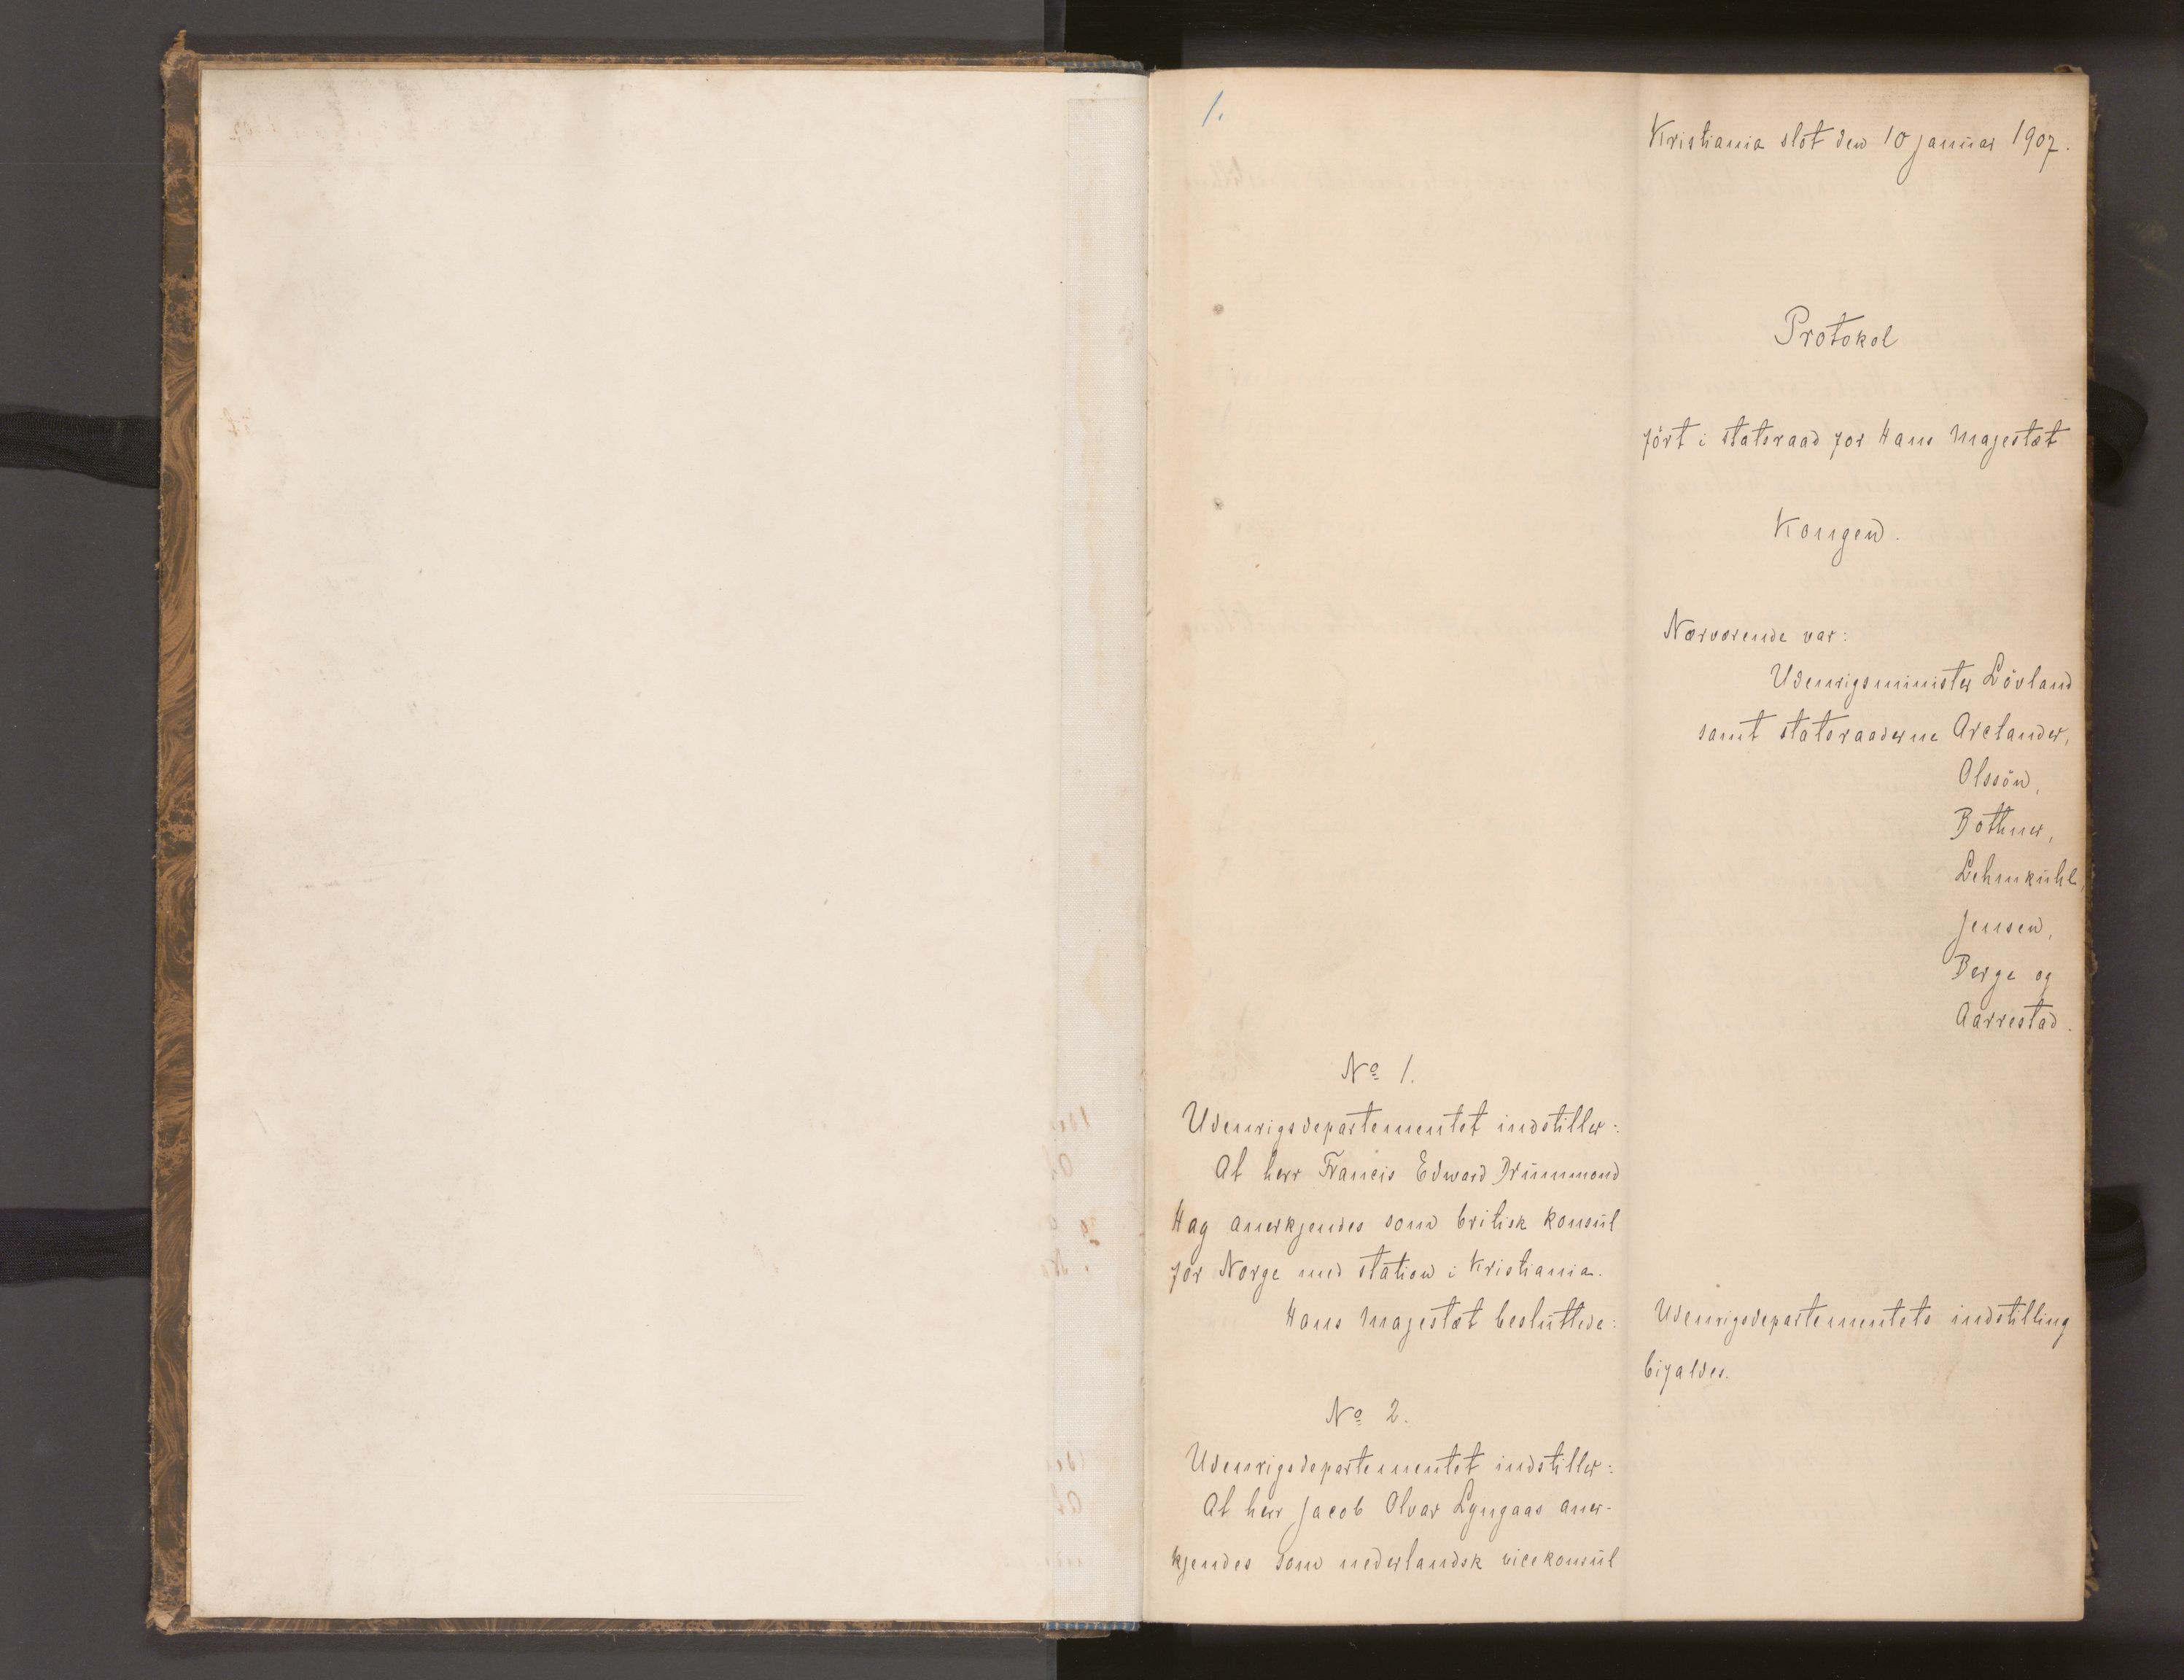 1.
Kristiania slot den 10 januar 1907.
Protokol
ført i statsraad for Hans Majestæt
Kongen.
Nærværende var:
Udenrigsminister Løvland
samt statsraaderne Arctander,
Olssøn,
Bothner,
Lehmkühl,
Jensen,
Berge og
Aarrestad.
No 1.
Udenrigsdepartementet indstiller:
At herr Francis Edward Drummond
Hay anerkjendes som britisk konsul
for Norge med station i Kristiania.
Hans Majestæt besluttede:
Udenrigsdepartementets indstilling
bifaldes.
No 2.
Udenrigsdepartementet indstiller:
At herr Jacob Olvar Lyngaas aner-
kjendes som nederlandsk vicekonsul